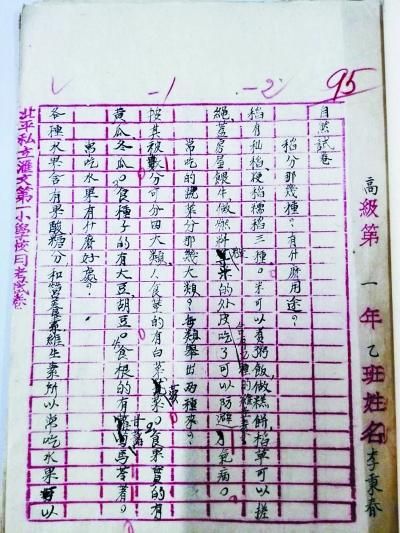 95
-2
-1
高級第一年乙班姓名李東春
自然試卷
稻分那幾種?有什麼用途。
稻有秈稻、硬稻、糯稻三種。米可以煮粥飯做糕餅稻草可以搓
繩蓋房屋餵牛做燃料米的外皮吃了可以防避病。
常吃的蔬菜分那幾大類?每類舉出兩種來?
按其被分可分四大類。食葉的有白菜菠菜。食果實的有
黃瓜、冬瓜。食種子的有大豆胡豆。食根的有甘薯馬苓薯。
常吃水果有什麼好處?
各種水果含有果酸糖分和營養素維生素所以常吃水果可以
北平私立滙文第一小學校月考試卷